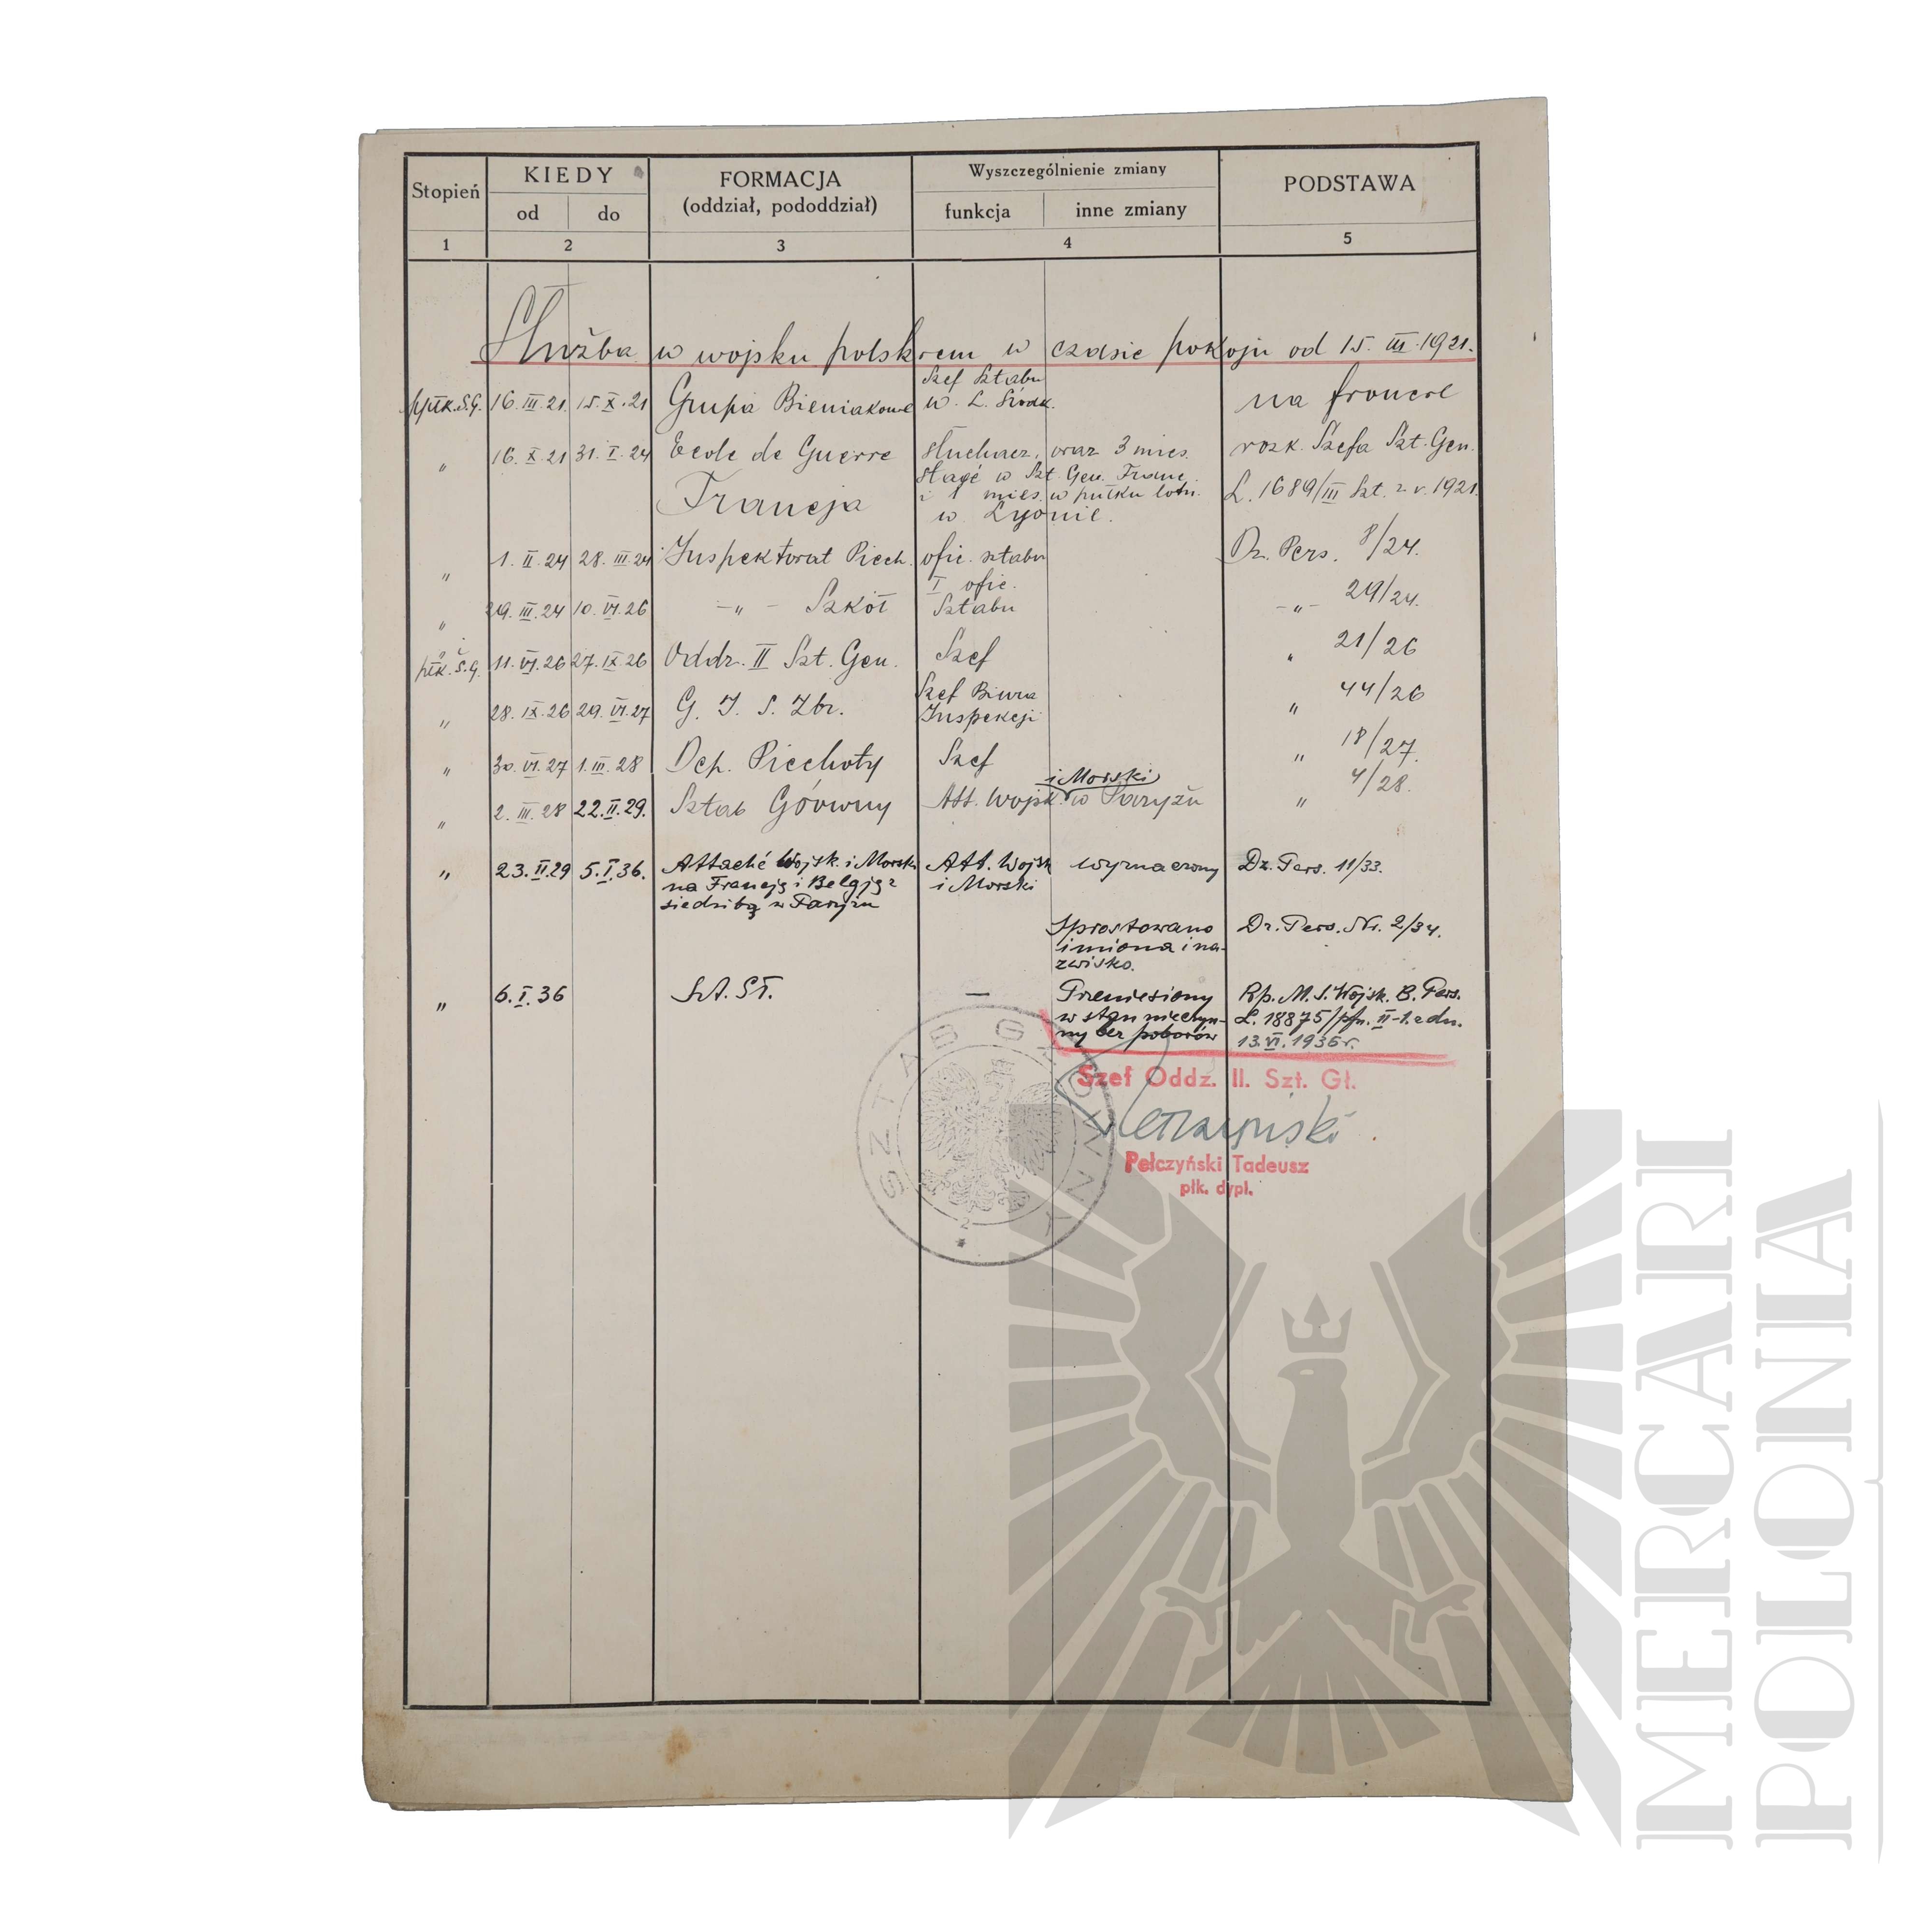 Stopień
KIEDY
od do
FORMACJA
(oddział, pododdział)
Wyszczególnienie zmiany
funkcja inne zmiany
PODSTAWA
1 2 3 4 5
Służba w wojsku polskiem w czasie pokoju od 15. III. 1921.
ppłk. S.G. 16. III. 21 15. X. 21 Grupa Bieniakonie Szef Sztabu na froncie
w L. Środk.
" 16. X. 21 31. I. 24 Ecole de Guerre słuchacz, oraz 3 mies. rozk. Szefa Szt. Gen.
Francja stage w Szt. Gen. Franc. L. 1689/III Szt. z r. 1921.
i 1 mies. w pułku lotn.
w Lyonie.
" 1. II. 24 28. III. 24 Inspektorat Piech. ofic. sztabu Dz. Pers. 8/24.
" 29. III. 24 10. VI. 26 -"- Szkół I ofic. -"- 29/24.
Sztabu
płk. S.G. 11. VI. 26 27. IX. 26 Oddz. II Szt. Gen. Szef " 21/26
" 28. IX. 26 29. VI. 27 G. I. S. Zbr. Szef Biura " 44/26
Inspekcji
" 30. VI. 27 1. III. 28 Dep. Piechoty Szef " 18/27.
i Morski
" 2. III. 28 22. II. 29. Sztab Główny Att. Wojsk. w Paryżu " 4/28.
" 23. II. 29 5. I. 36. Attaché Wojsk. i Morski Att. Wojsk wyznaczony Dz. Pers. 11/33.
na Francję i Belgję z i Morski
siedzibą w Paryżu
Sprostowano Dz. Pers. Nr. 2/34.
imiona i na-
zwisko.
" 6. I. 36 Szt. Gł. — Przeniesiony Rp. M. S. Wojsk. B. Pers.
w stan nieczyn- L. 18875/pfn. II-1. z dn.
ny bez poborów 13. VI. 1936 r.
SZTAB GŁÓWNY
2
Szef Oddz. II. Szt. Gł.
Pełczyński Tadeusz
płk. dypl.
MERCARI
POLONIA